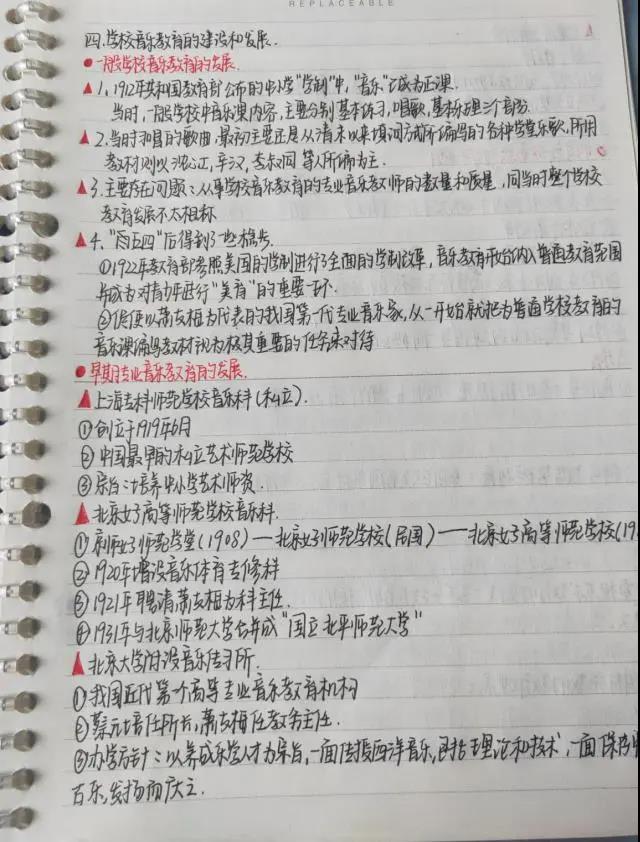 REPLACEABLE
四.学校音乐教育的建设和发展.
●一般学校音乐教育的发展.
▲1.1912年共和国教育部公布的中小学"学制"中,"音乐"已成为正课.
当时,一般学校中音乐课内容,主要分别基本练习,唱歌,基本乐理三个部分.
▲2.当时和唱的歌曲,最初主要还是从清末以来填词方式所编写的各种学堂乐歌,所用
教材则以沈心工,辛汉,李叔同等人所编为主.
▲3.主要存在问题:从事学校音乐教育的专业音乐教师的数量和质量,同当时整个学校
教育发展不太相称
▲4."五四"后得到了些稳步.
①1922年教育部参照美国的学制进行了全面的学制改革,音乐教育开始纳入普通教育范围
并成为对青少年进行"美育"的重要一环.
②促使以萧友梅为代表的我国第一代专业音乐家,从一开始就把为普通学校教育的
音乐课编写教材视为极其重要的任务来对待
●早期专业音乐教育的发展.
▲上海专科师范学校音乐科(私立).
①创立于1919年6月
②中国最早的私立艺术师范学校
③宗旨:培养中小学艺术师资.
▲北京女子高等师范学校音乐科.
①京师女子师范学堂(1908)——北京女子师范学校(民国)——北京女子高等师范学校(19
②1920年增设音乐体育专修科
③1921年聘请萧友梅为科主任.
④1931年与北京师范大学合并成"国立北平师范大学"
▲北京大学附设音乐传习所.
①我国近代第一个高等专业音乐教育机构
②蔡元培任所长,萧友梅任教务主任.
③办学方针:以养成乐学人才为宗旨,一面传授西洋音乐,包括理论和技术,一面保存
古乐,发扬而广之.